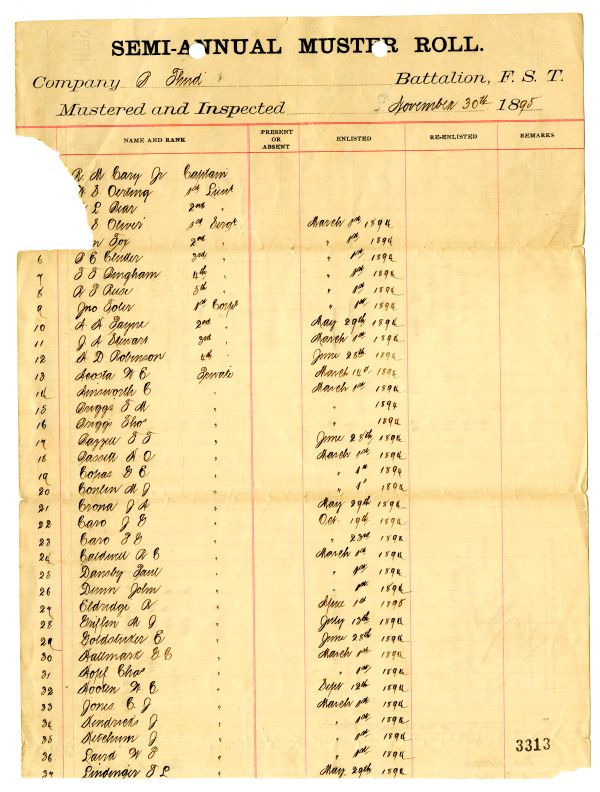 SEMI-ANNUAL MUSTER ROLL.
Company B Third Battalion, F. S. T.
Mustered and Inspected November 30th 1895
NAME AND RANK PRESENT OR ABSENT ENLISTED RE-ENLISTED REMARKS
R M Cary Jr Captain
S Oerting 1st Lieut
L Bear 2nd "
S Oliver 1st Sergt March 1st 1894
Fox 2nd " " 1st 1894
6 3rd " " 1st 1894
7 Bingham 4th " " 1st 1894
8 5th " " 1st 1894
9 Jno 1st Corpl " 1st 1894
10 Payne 2nd " May 29th 1894
11 J A Stewart 3rd " March 1st 1894
12 A D Robinson 4th " June 28th 1894
13 Acosta W C Private March 1894
14 Ainsworth C " March 1st 1894
15 Briggs " " 1894
16 Briggs Thos " " 1894
17 " June 28th 1894
18 " March 1st 1894
19 Copas E " " 1st 1894
20 Conlin M J " " 1st 1894
21 Crona J A " May 29th 1894
22 Caro J E " Oct. 19th 1894
23 Caro " " 23rd 1894
24 Caldwell R C " March 1st 1894
25 Dansby Paul " " 1st 1894
26 Dunn John " " 1st 1894
27 Eldridge R " 1st 1895
28 Griffin M J " July 13th 1894
29 Goldstucker C " June 28th 1894
30 Hallmark E C " March 1st 1894
31 Hopf Chas " " 1st 1894
32 Hooten W C " Sept 12th 1894
33 Jones C J " March 1st 1894
34 Kendricks J " " 1st 1894
35 Ketchum J " " 1st 1894
36 Laird W " " 1st 1894
37 Lindinger L " May 29th 1894
3313